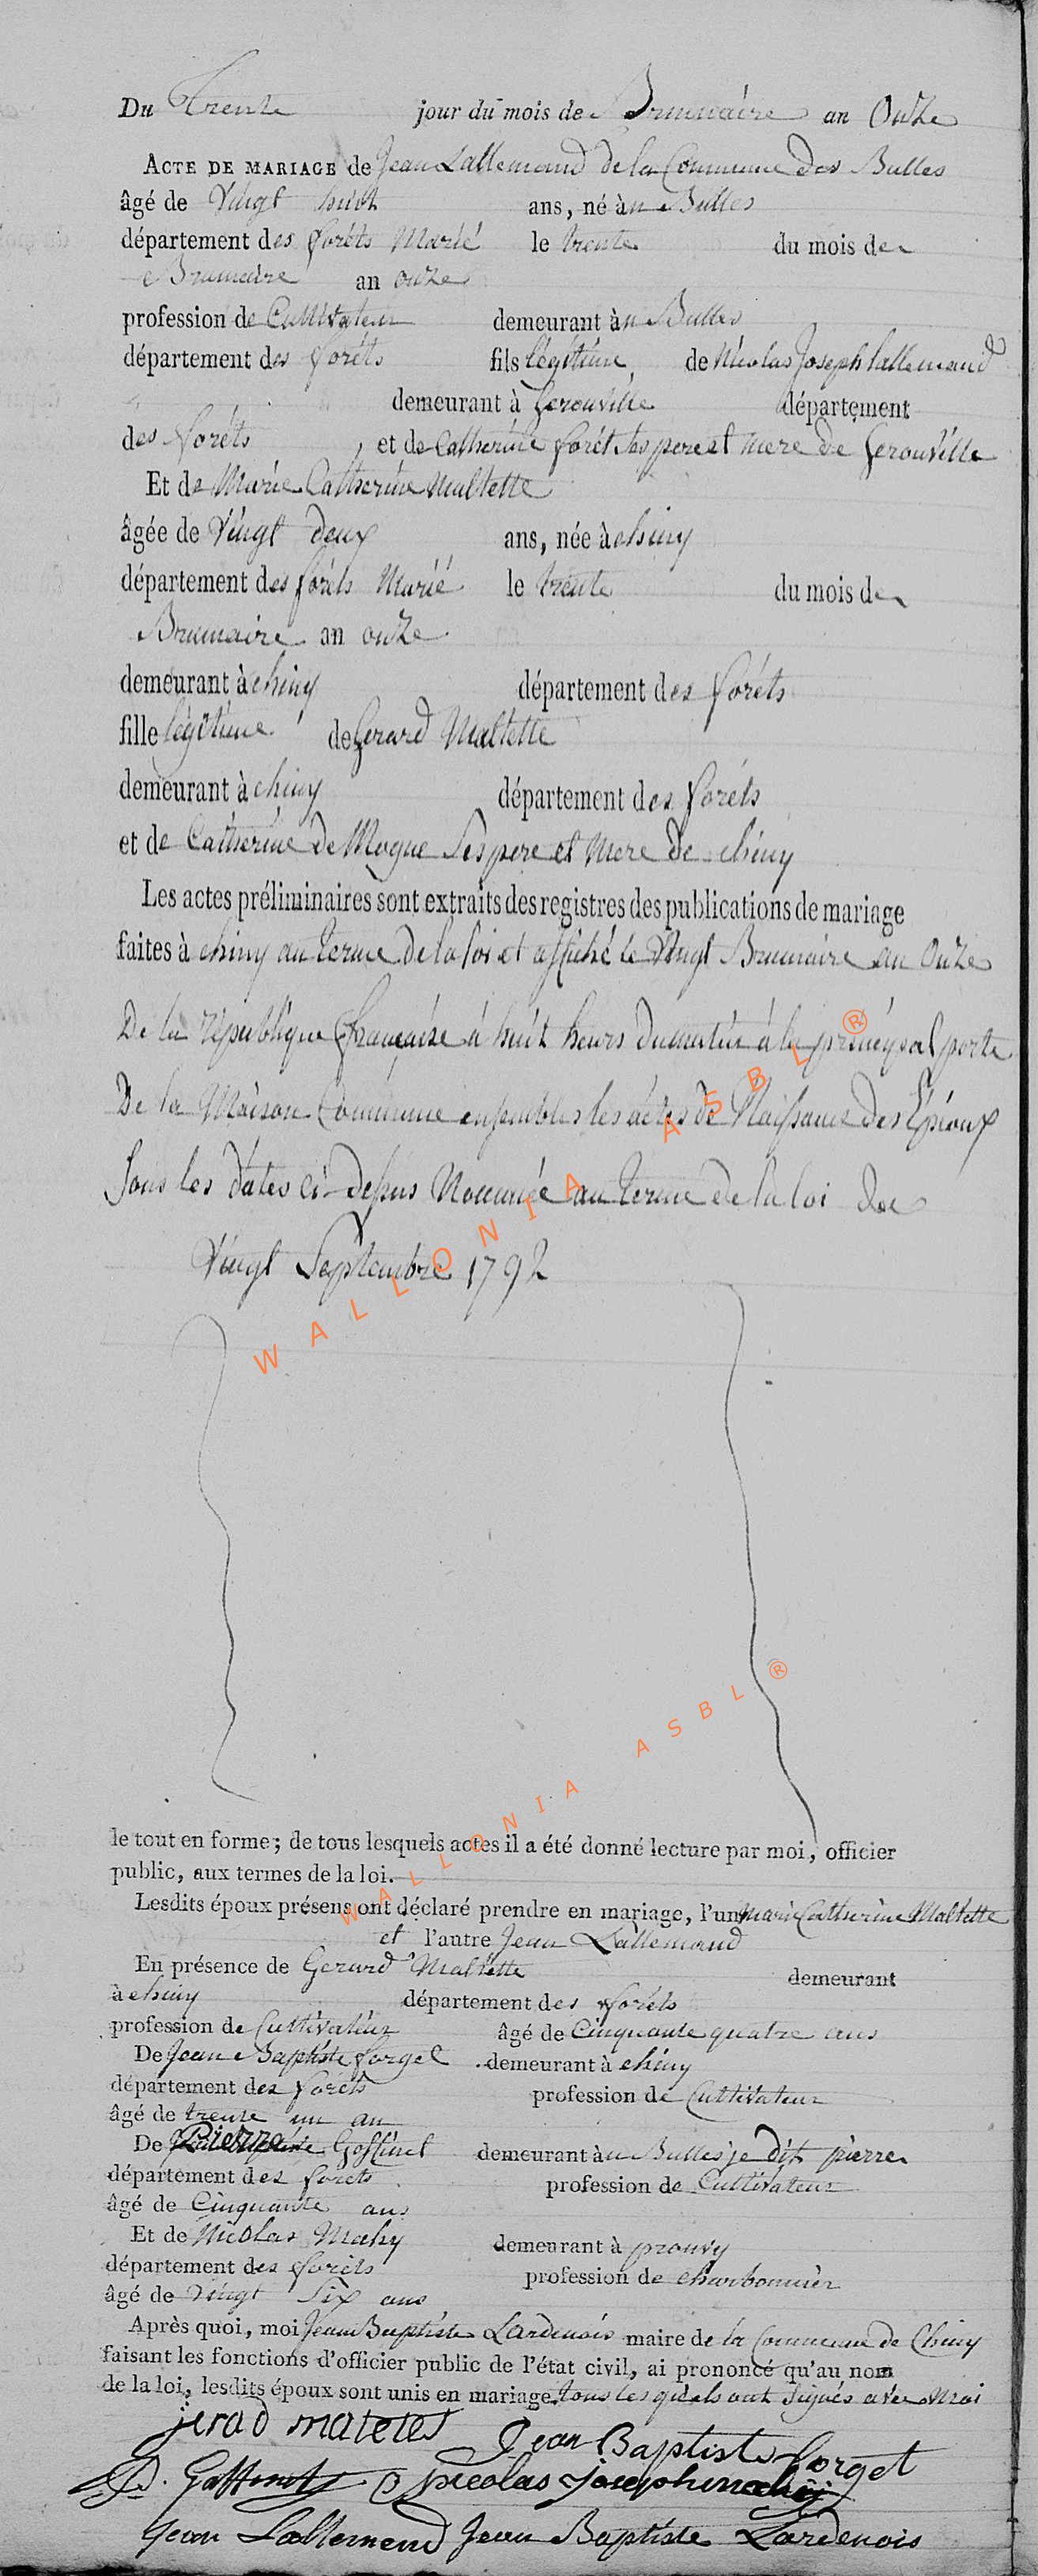 Du Trente jour du mois de Brumaire an Onze
ACTE DE MARIAGE de Jean Lallemand de la Commune des Bulles
âgé de Vingt huit ans, né à u Bulles
département des forêts Marié le trente du mois de
Brumaire an onze
profession de Cultivateur demeurant à u Bulles
département des forêts fils légitime de Nicolas Joseph lallemand
demeurant à Gerouville département
des forêts, et de Catherine forêt ses pere et mere de Gerouville
Et de Marie Catherine Maltette
âgée de Vingt deux ans, née à chiny
département des forêts Marié le trente du mois de
Brumaire an onze
demeurant à chiny département des forêts
fille légitime de Gerard Maltette
demeurant à chiny département des forêts
et de Catherine De Moque Ses pere et Mere de chiny
Les actes préliminaires sont extraits des registres des publications de mariage
faites à chiny au terme de la loi et affiché le Vingt Brumaire an Onze
De la république française à huit heurs du matin à la porte
De la Maison Commune ensembles les actes de Naissance des Epioux
Sous les dates ci-dessus Nommée au terme de la loi de
Vingt Septembre 1792
WALLONIA ASBL ®
WALLONIA ASBL ®
le tout en forme; de tous lesquels actes il a été donné lecture par moi, officier
public, aux termes de la loi.
Lesdits époux présens ont déclaré prendre en mariage, l'un Marie Catherine Maltette
et l'autre Jean Lallemand
En présence de Gerard Maltette demeurant
à chiny département des forêts
profession de Cultivateur âgé de Cinquante quatre ans
De Jean Baptiste forget demeurant à chiny
département des forêts profession de Cultivateur
âgé de trente un an
De Pierre Goffinet demeurant à u Bulles je dit pierre
département des forêts profession de Cultivateur
âgé de Cinquante ans
Et de Nicolas Mahy demeurant à prouvy
département des forêts profession de charbonnier
âgé de Vingt Six ans
Après quoi, moi Jean Baptiste Lardenois maire de la Commune de Chiny
faisant les fonctions d'officier public de l'état civil, ai prononcé qu'au nom
de la loi, lesdits époux sont unis en mariage. tous lesquels ont signés avec Moi
jerad matetes Jean Baptiste forget
P. Goffinet nicolas joseph mahy
Jean Lallemend Jean Baptiste Lardenois